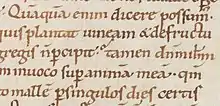 Quaqua enim dicere possum
quis plantat uineam & de fructu
gregis n̄ pcipit tamen dn̄m
inuoco sup anima mea. qm̄
to malle p singulos dies certis